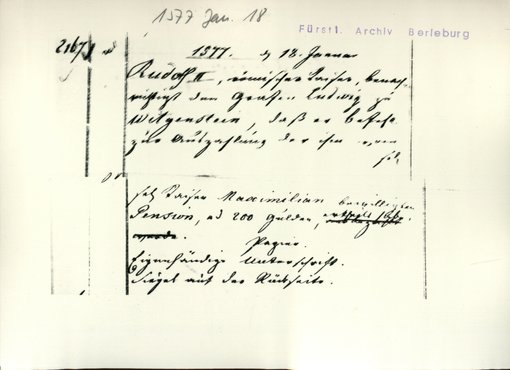 1577 Jan. 18
Fürstl. Archiv Berleburg
2167
1577. 18. Januar
Rudolf II, römischer Kaiser, benach-
richtigt den Grafen Ludwig zu
Witgenstein, daß er Befehl
zur Auszahlung der ihm vom
sel. Kaiser Maximilian bewilligten
Pension, ad 200 Gulden, ertheilt habe.
Papier.
Eigenhändige Unterschrift.
Siegel auf der Rückseite.